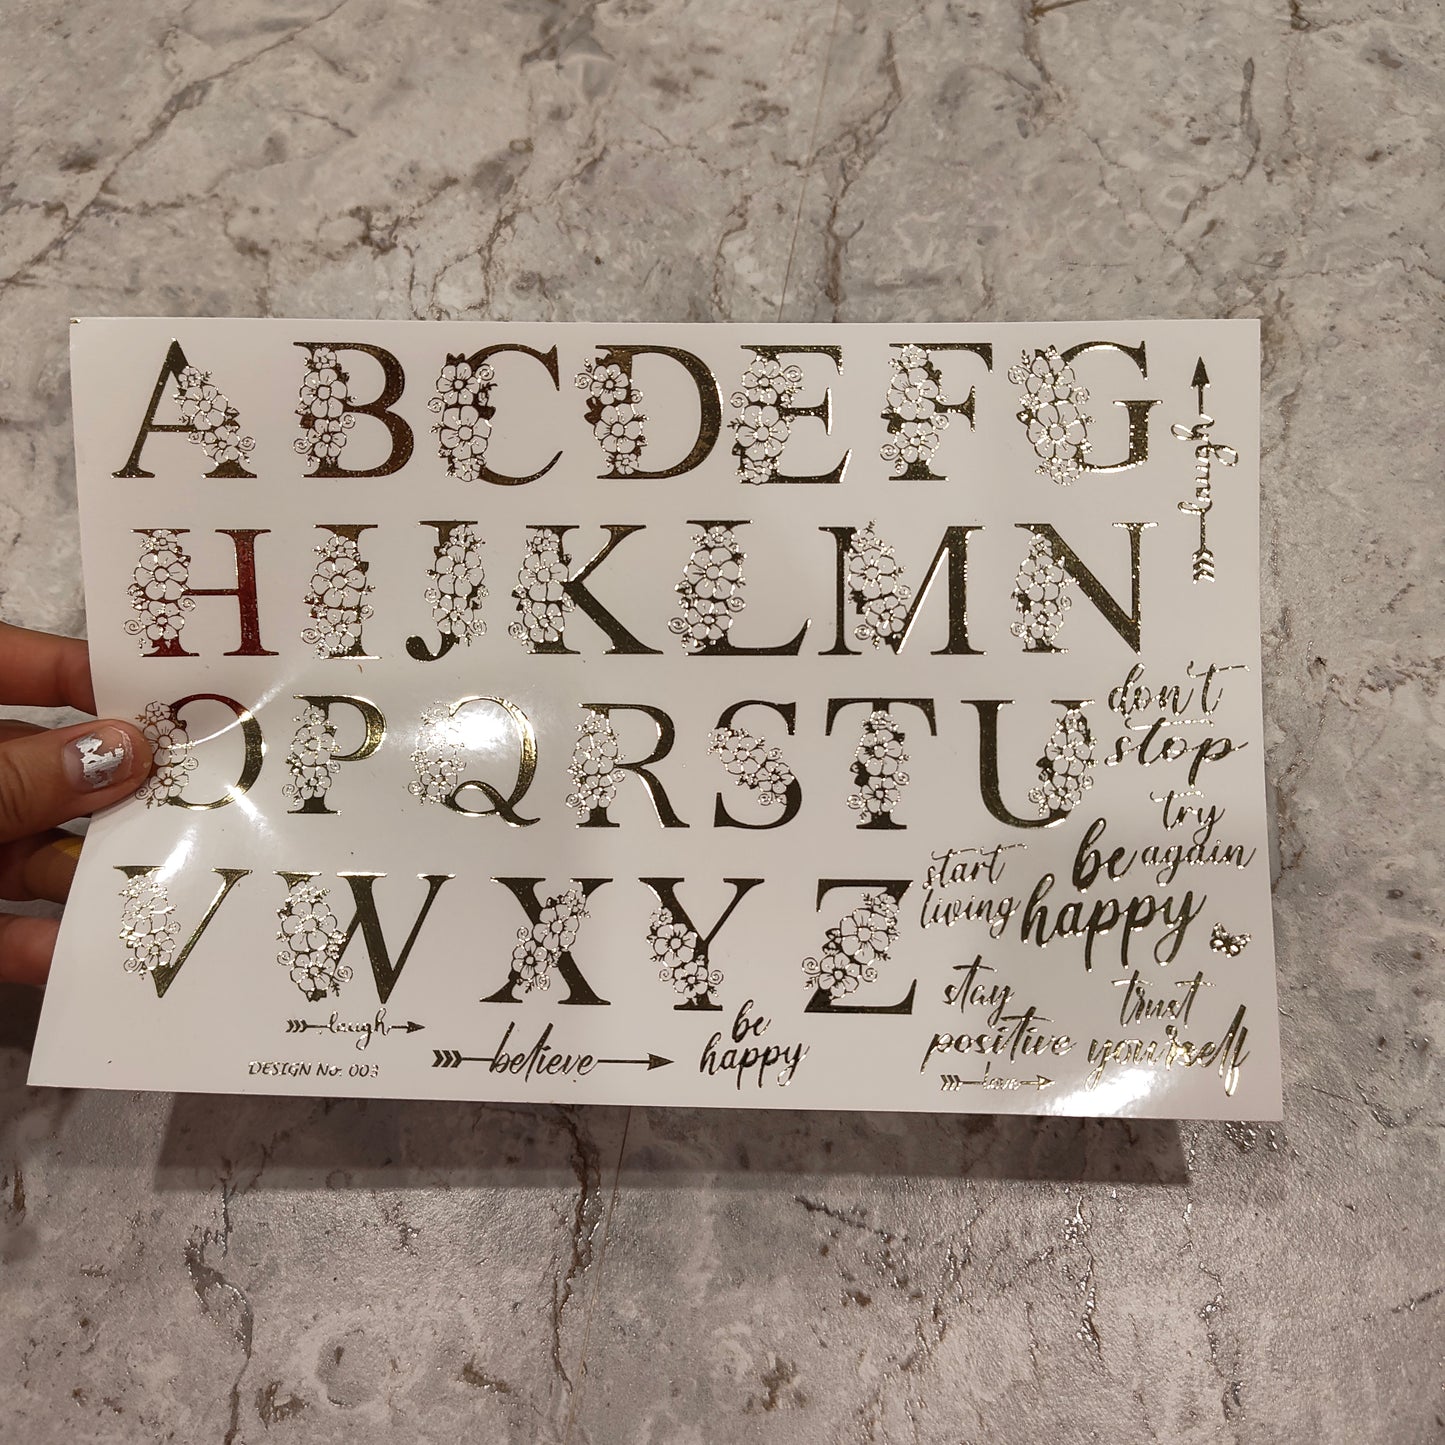 A B C D E F G
laugh
H I J K L M N
O P Q R S T U
don't
stop
try
again
V W X Y Z
start
living
be
happy
stay
positive
trust
yourself
laugh
believe
be
happy
love
DESIGN No. 003